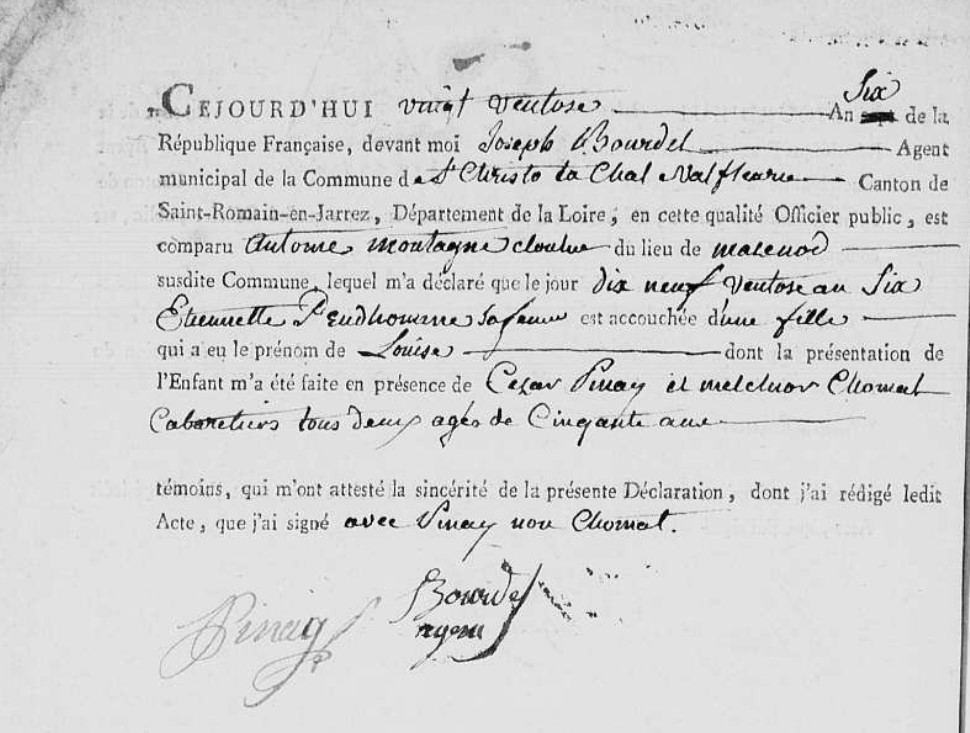 CEJOURD'HUI vingt ventose An Six sept de la
République Française, devant moi Joseph Bourdel Agent
municipal de la Commune de St Christo la Chal Valfleurie Canton de
Saint-Romain-en-Jarrez, Département de la Loire, en cette qualité Officier public, est
comparu Antoine montagne cloutier du lieu de malenod
susdite Commune, lequel m'a déclaré que le jour dix neuf ventose an Six
Etiennette Prudhomme sa femme est accouchée d'une fille
qui a eu le prénom de Louise dont la présentation de
l'Enfant m'a été faite en présence de Cezar Pinay et melchior Chomat
Cabaretiers tous deux agés de Cinquante ans
témoins, qui m'ont attesté la sincérité de la présente Déclaration, dont j'ai rédigé ledit
Acte, que j'ai signé avec Pinay non Chomat.
Pinay Bourdel
agent